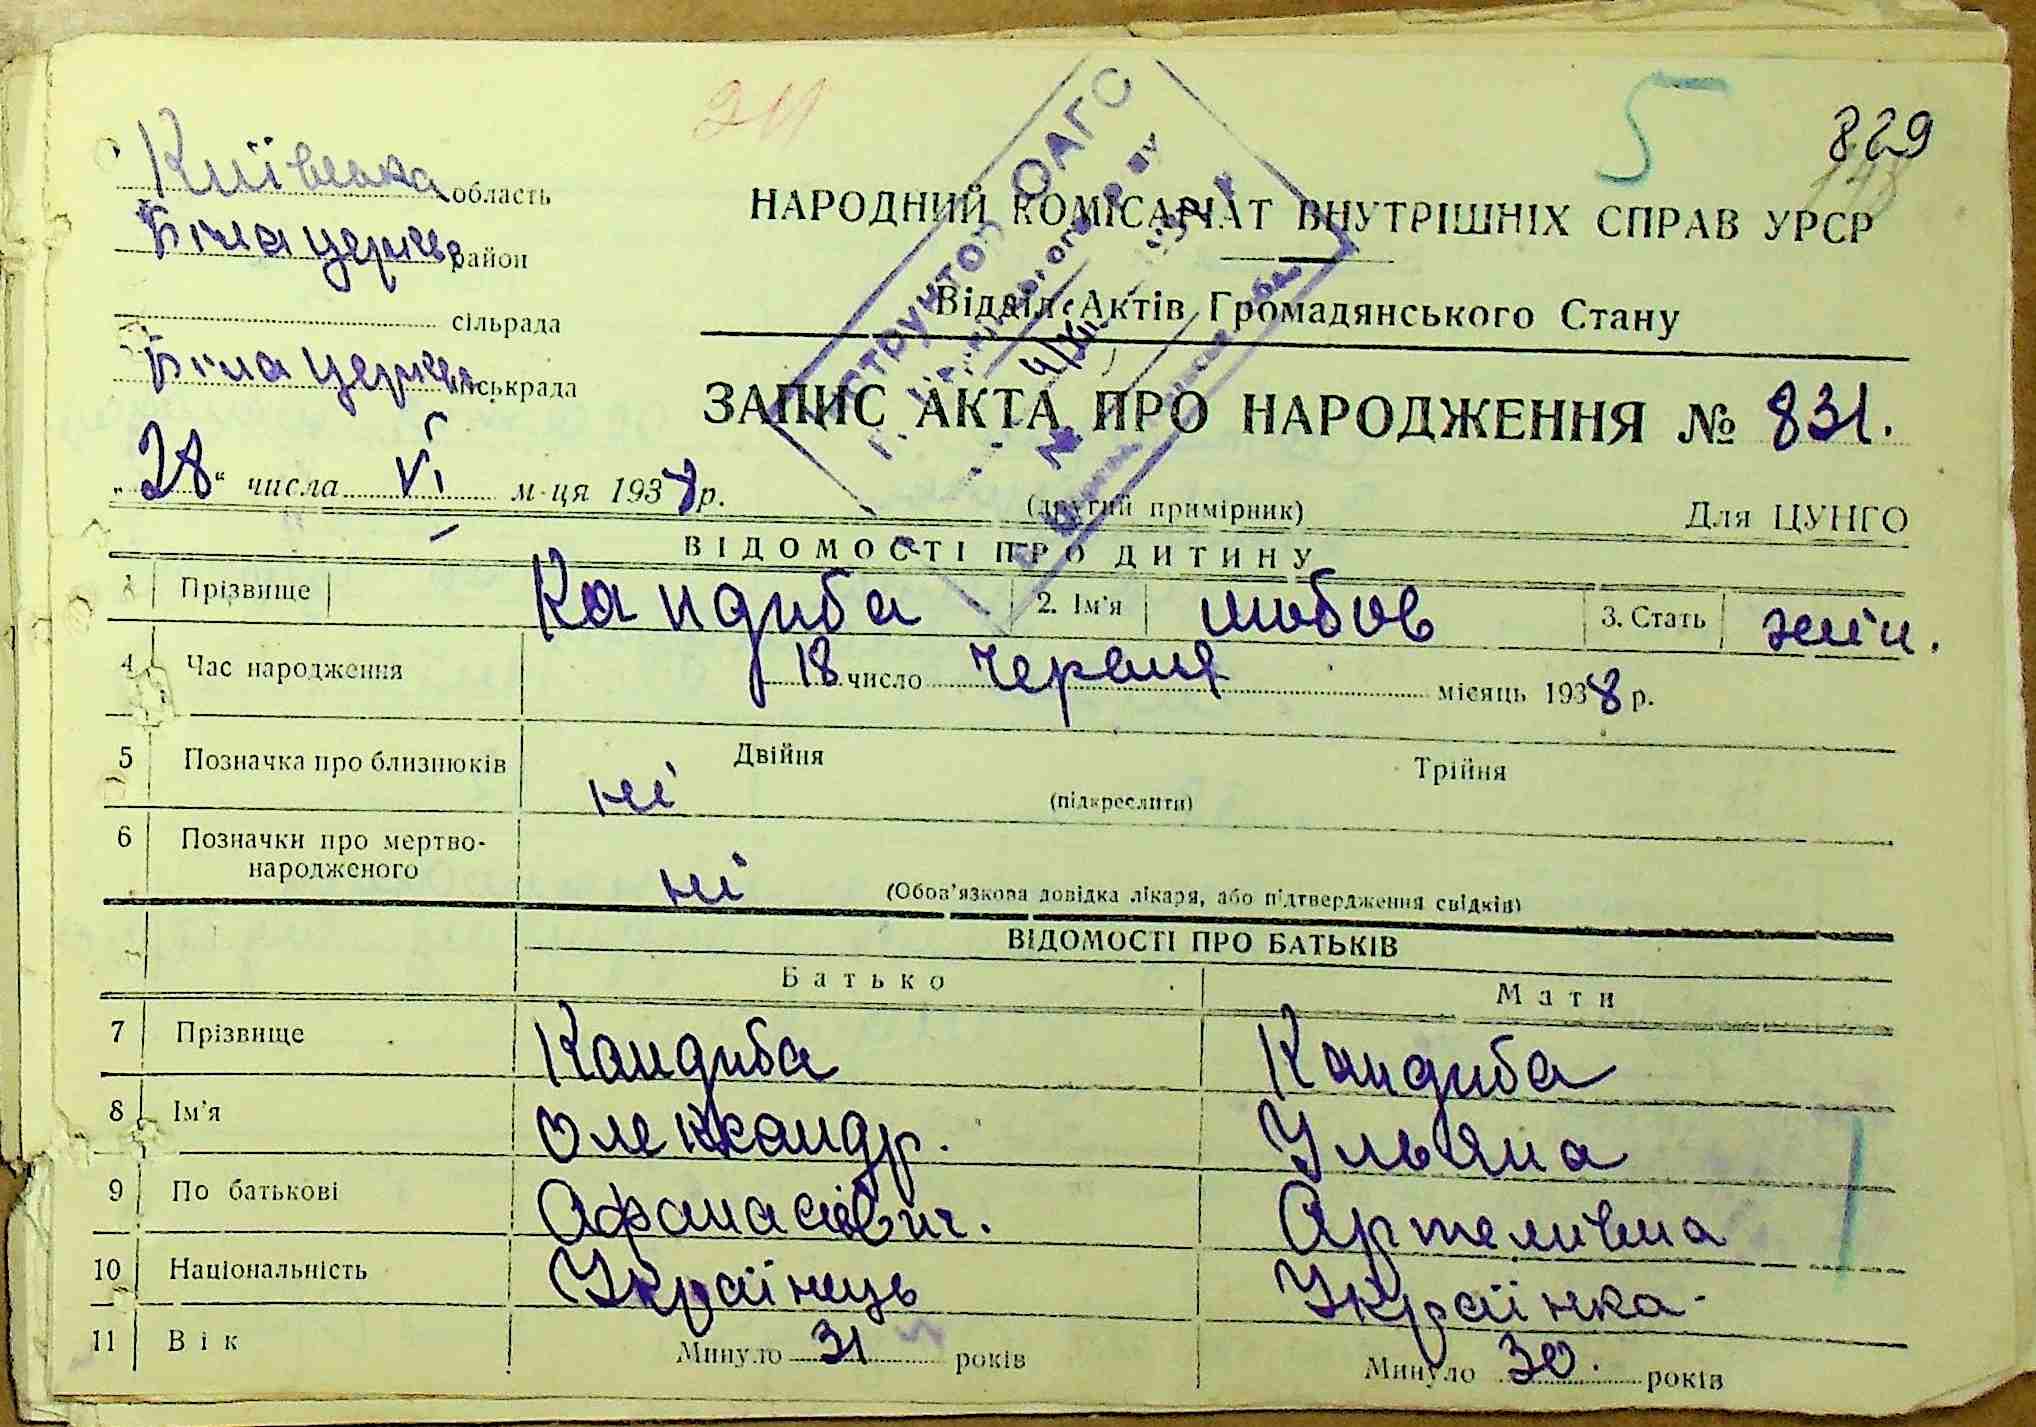 211
5
829
148
Київська область
Біла церква район
сільрада
Біла церква міськрада
НАРОДНИЙ КОМІСАРІАТ ВНУТРІШНІХ СПРАВ УРСР
Відділ Актів Громадянського Стану
ЗАПИС АКТА ПРО НАРОДЖЕННЯ № 831.
„28“ числа VI м-ця 1938 р.
(другий примірник)
Для ЦУНГО
ВІДОМОСТІ ПРО ДИТИНУ
1 Прізвище Кандиба 2. Ім'я Любов 3. Стать жін.
4 Час народження 18 число Червня місяць 1938 р.
5 Позначка про близнюків ні Двійня Трійня
(підкреслити)
6 Позначки про мертво-
народженого ні (Обов'язкова довідка лікаря, або підтвердження свідків)
ВІДОМОСТІ ПРО БАТЬКІВ
Батько Мати
7 Прізвище Кандиба Кандиба
8 Ім'я Олександр. Ульяна
9 По батькові Афанасієвич. Артемівна
10 Національність Українець Українка
11 Вік Минуло 31 років Минуло 30. років